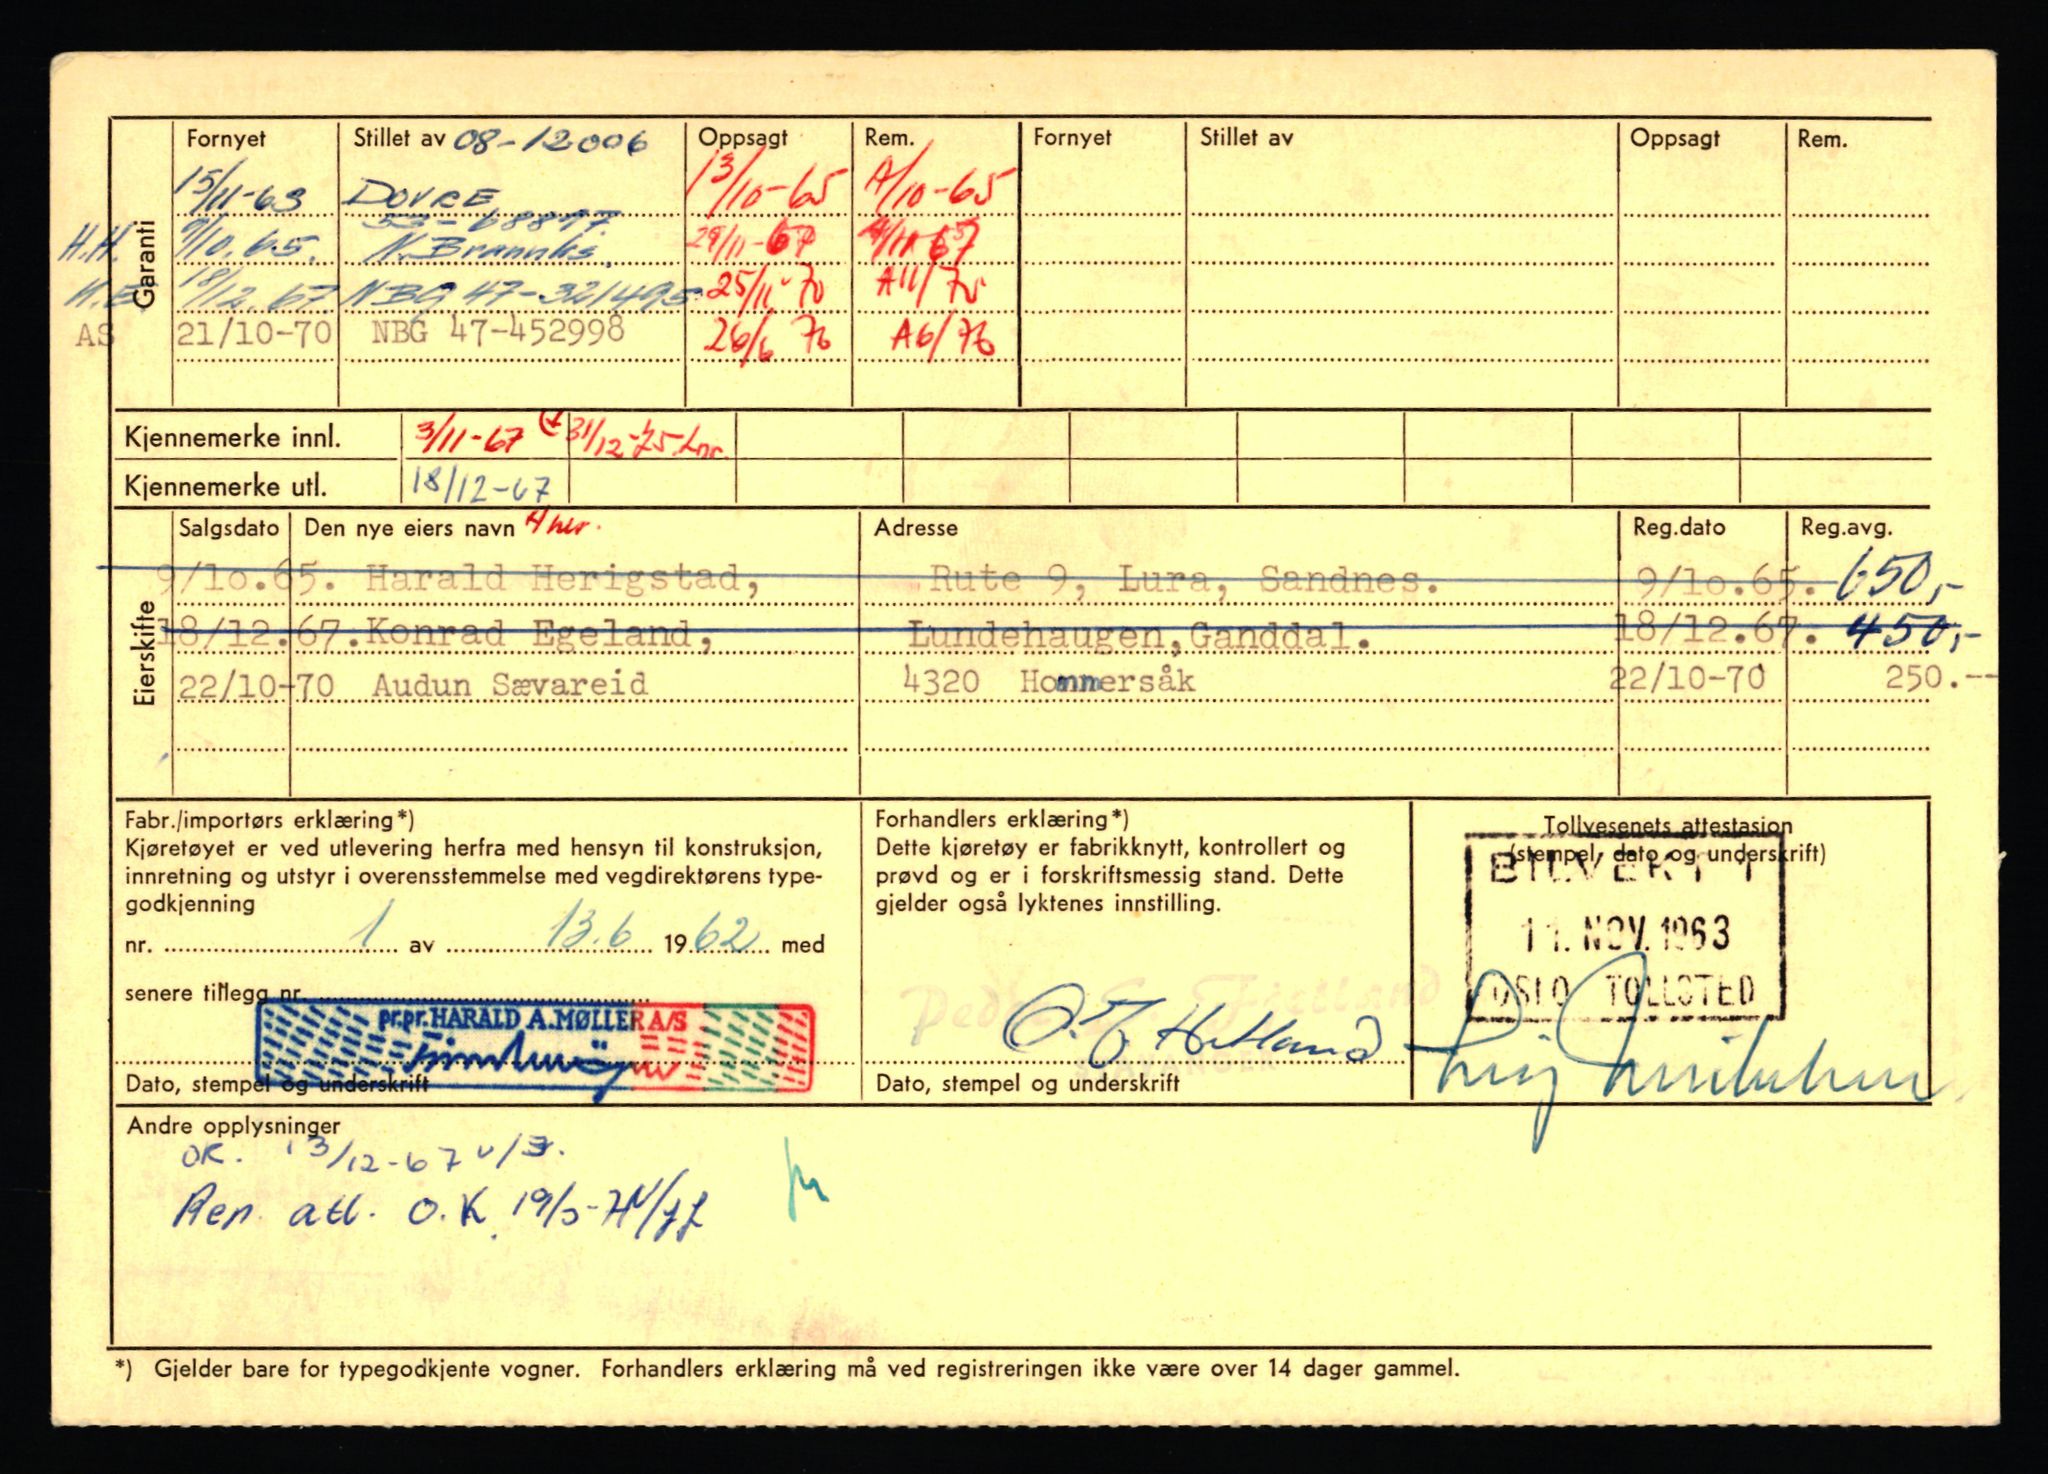 Fornyet Stillet av 08-12006 Oppsagt Rem. Fornyet Stillet av Oppsagt Rem.
Garanti
15/11-63 DOVRE 13/10-65 A/10-65
53-68897
H.H. 9/10.65. N.Brannks. 29/11-67 A/11 67
H.E. 18/12.67 NBG 47-321495 25/11 70 A11/70
AS 21/10-70 NBG 47-452998 26/6 76 A6/76
Kjennemerke innl. 3/11-67 31/12-75
Kjennemerke utl. 18/12-67
Eierskifte
Salgsdato Den nye eiers navn Adresse Reg.dato Reg.avg.
9/10.65. Harald Herigstad, Rute 9, Lura, Sandnes. 9/10.65. 650,-
18/12.67. Konrad Egeland, Lundehaugen, Ganddal. 18/12.67. 450,-
22/10-70 Audun Sævareid 4320 Hommersåk 22/10-70 250.--
Fabr./importørs erklæring*)
Kjøretøyet er ved utlevering herfra med hensyn til konstruksjon,
innretning og utstyr i overensstemmelse med vegdirektørens type-
godkjenning
nr. 1 av 13.6 1962 med
senere tillegg nr.
pr.pr. HARALD A. MØLLER A/S
Dato, stempel og underskrift
Forhandlers erklæring*)
Dette kjøretøy er fabrikknytt, kontrollert og
prøvd og er i forskriftsmessig stand. Dette
gjelder også lyktenes innstilling.
Hetland
Dato, stempel og underskrift
Tollvesenets attestasjon
(stempel, dato og underskrift)
BILVEKTT
11. NOV. 1963
OSLO TOLLSTED
Andre opplysninger
OK. 13/12-67
Rep. atl. O.K.
*) Gjelder bare for typegodkjente vogner. Forhandlers erklæring må ved registreringen ikke være over 14 dager gammel.